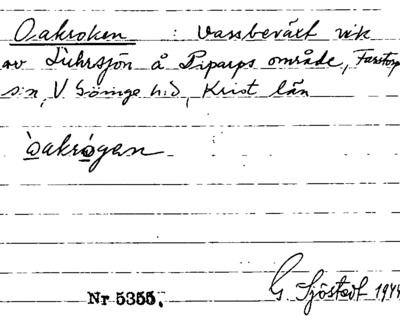 Oakroken : Vassbeväxt vik
av Tuhrsjön å Piparps område, Farstorp
s:n, V Göinge h:d, Krist län
òakrógan
Nr 5355.
G Sjöstedt 1944